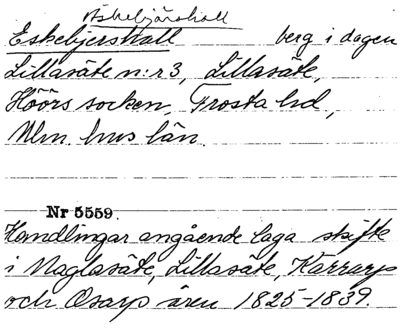 Askebjärshall
Eskebjershall berg i dagen
Lillasäte n:r 3, Lillasäte,
Höörs socken, Frosta hd,
Mlm hus län.
Nr 5559.
Handlingar angående laga skifte
i Maglasäte, Lillasäte, Kärrarp
och Osarp åren 1825-1839.